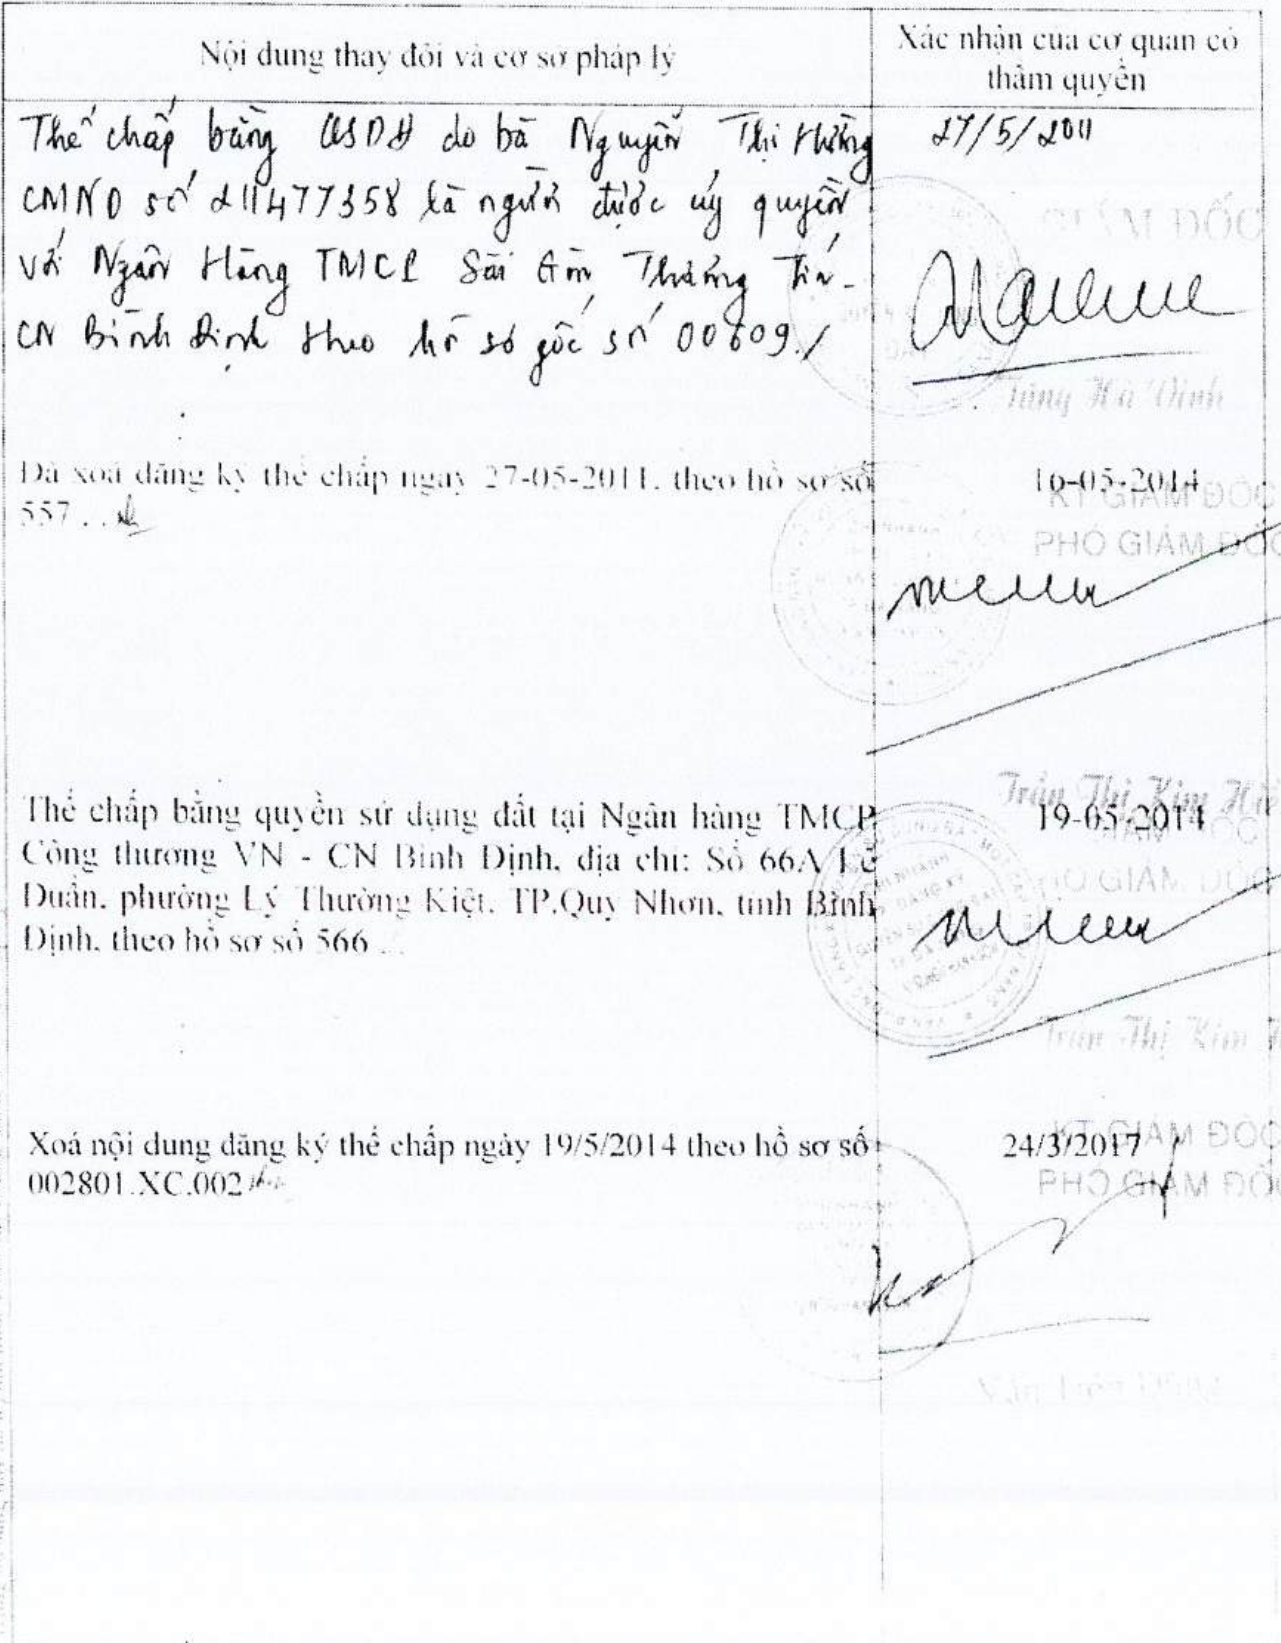 Nội dung thay đổi và cơ sở pháp lý
Xác nhận của cơ quan có
thẩm quyền
Thế chấp bằng QSDĐ do bà Nguyễn Thị Hường
CMND số 211477358 là người được uỷ quyền
với Ngân Hàng TMCP Sài Gòn Thương Tín -
CN Bình Định theo hồ sơ gốc số 00609./
27/5/2011
GIÁM ĐỐC
Tăng Hà Vinh
Đã xoá đăng ký thế chấp ngày 27-05-2011. theo hồ sơ số
557 ..
16-05-2014
KT GIÁM ĐỐC
PHÓ GIÁM ĐỐC
Trần Thị Kim
Thế chấp bằng quyền sử dụng đất tại Ngân hàng TMCP
Công thương VN - CN Bình Định, địa chỉ: Số 66A Lê
Duẩn, phường Lý Thường Kiệt, TP.Quy Nhơn, tỉnh Bình
Định, theo hồ sơ số 566 ...
19-05-2014
GIÁM ĐỐC
PHÓ GIÁM ĐỐC
Trần Thị Kim
Xoá nội dung đăng ký thế chấp ngày 19/5/2014 theo hồ sơ số
002801.XC.002
24/3/2017
KT GIÁM ĐỐC
PHÓ GIÁM ĐỐC